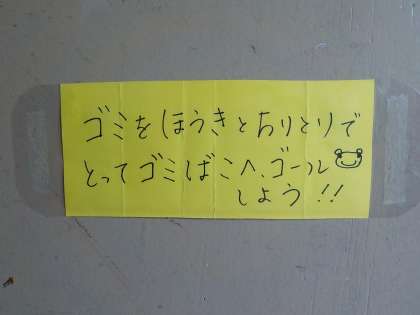 ゴミをほうきとちりとりで
とってゴミばこへ、ゴール
しよう!!